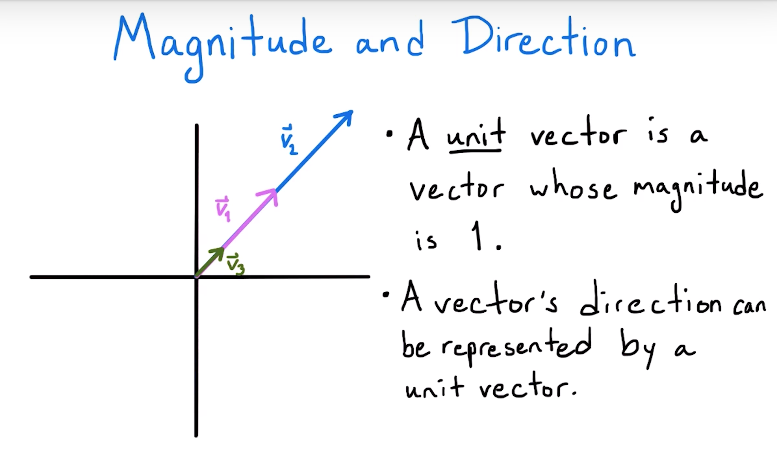 Magnitude and Direction
v⃗₂
v⃗₁
v⃗₃
• A unit vector is a
vector whose magnitude
is 1.
• A vector's direction can
be represented by a
unit vector.